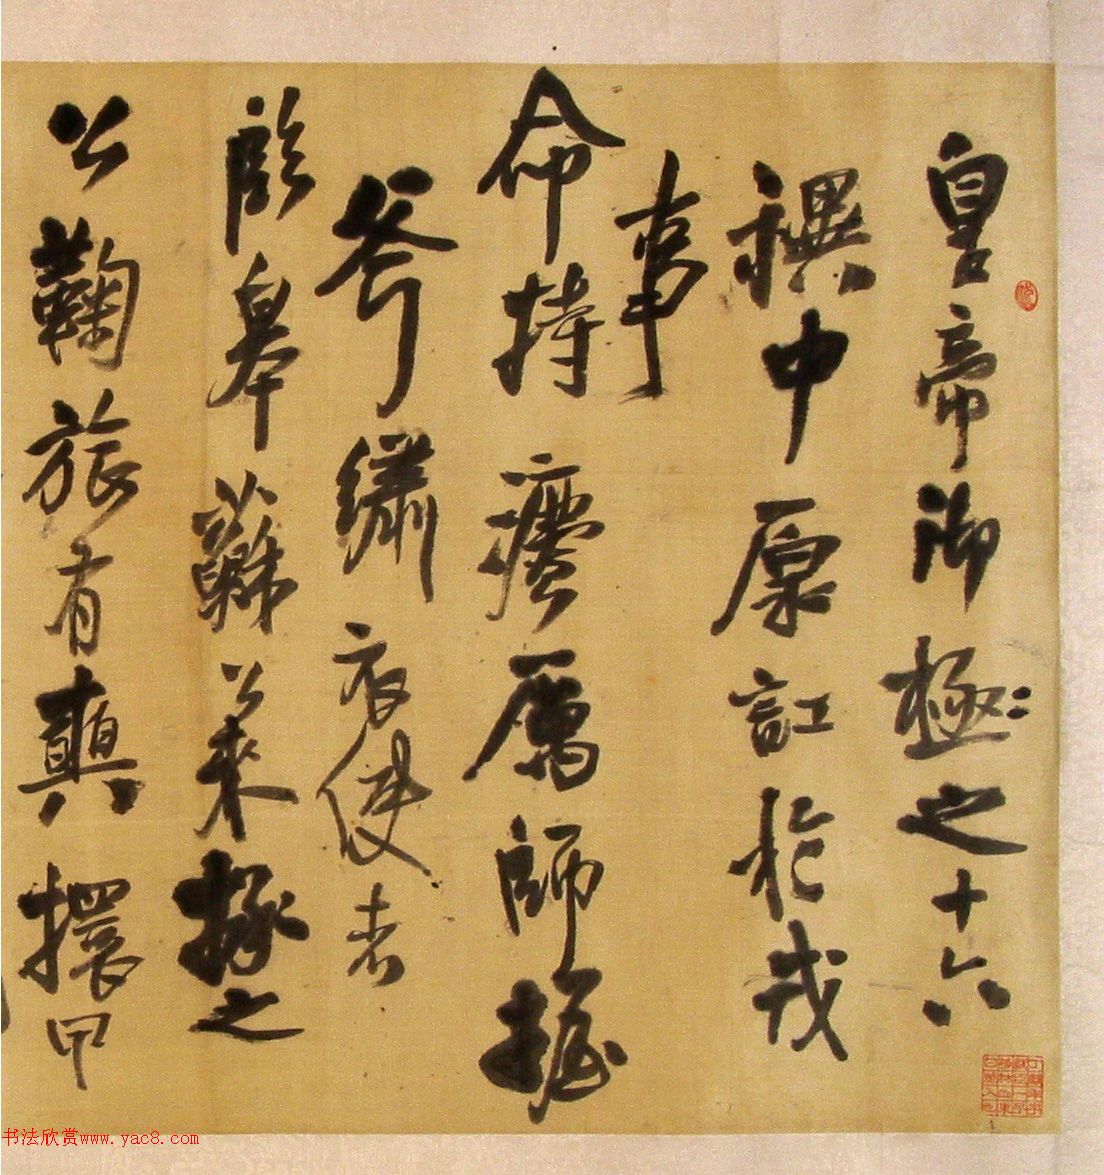 皇帝御極之十六
禩中原訌於戎
事
命持麾厲師握
斧繡衣使者
臨皋蘇公来拯之
公鞠旅有擐甲
书法欣赏www.yac8.com